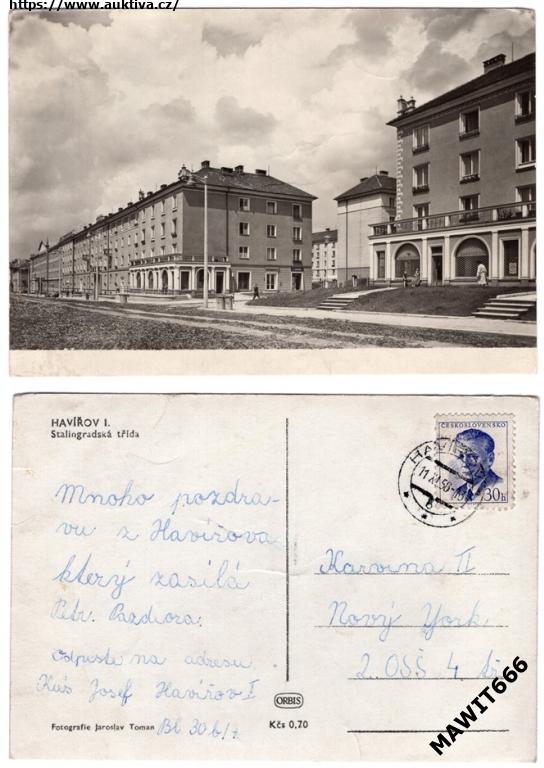 https://www.auktiva.cz/
HAVÍŘOV I.
Stalingradská třída
ČESKOSLOVENSKO
30h
11.XI.58
Mnoho pozdra-
vu z Havířova
který zasílá
Petr. Pazdiora.
Odpuste na adresu
Josef Havířov I
Bl 30 b/7
Karvina II
Nový York
2 OSŠ 4 tř
ORBIS
Fotografie Jaroslav Toman
Kčs 0,70
MAWIT666